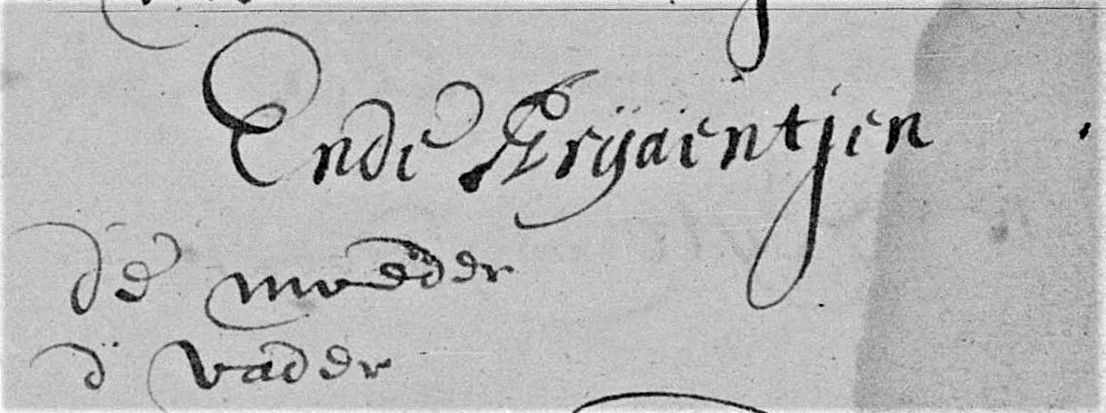 Ende Aryaentjen
de moeder
d vader